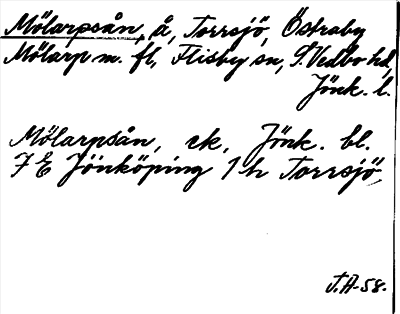 Mölarpsån, å, Torrsjö, Östraby
Mölarp m. fl., Flisby sn, S. Vedbo hd,
Jönk. l.
Mölarpsån, ek, Jönk. bl.
7 E Jönköping 1 h Torrsjö,
J.A-58.